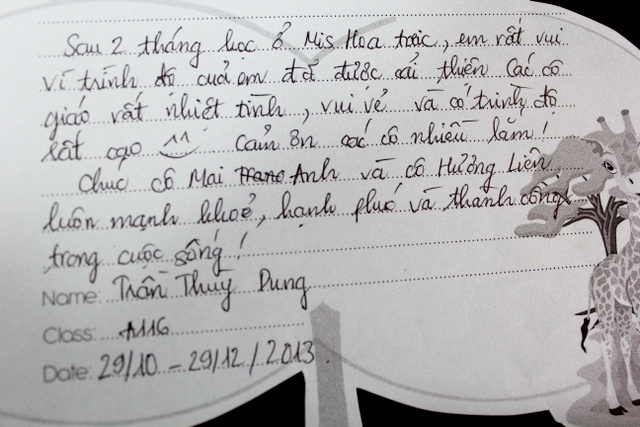 Sau 2 tháng học ở Mis Hoa toeic, em rất vui
vì trình độ của em đã được cải thiện Các cô
giáo rất nhiệt tình, vui vẻ và có trình độ
rất cao ^^ Cảm ơn các cô nhiều lắm!
Chúc cô Mai Trang Anh và cô Hương Liên
luôn mạnh khoẻ, hạnh phú và thành công
trong cuộc sống!
Name: Trần Thuỳ Dung
Class: A116
Date: 29/10 - 29/12/2013.